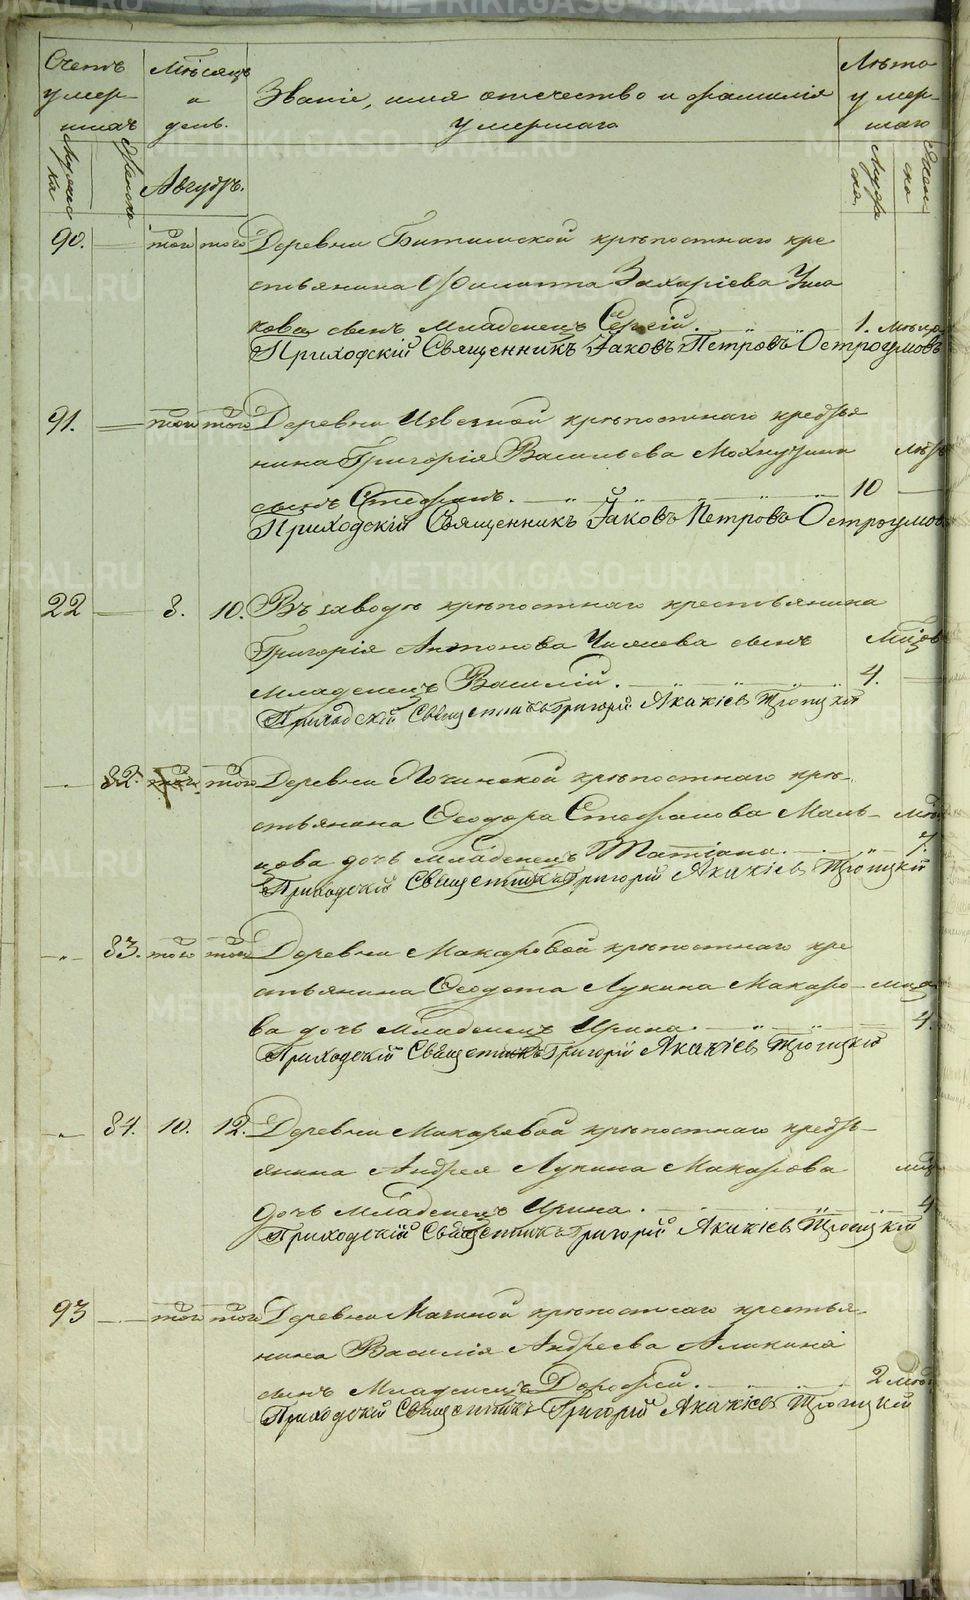 METRIKI.GASO-URAL.RU
Счетъ умершихъ
Мужеска
Женска
Мѣсяцъ и день.
Августъ.
Званіе, имя отечество и фамилія умершаго
Лѣта умершаго
Мужеска
Женска
90. — того того Деревни крѣпостнаго кре
стьянина Филиппа Захаріева Уша
кова сынъ Младенецъ Сергій. — 1. мѣсяца
Приходскій Священникъ Іаковъ Петровъ Остроумовъ
91. — того того Деревни крѣпостнаго кресть
нина Григорія Васильева лѣтъ
сынъ Стефанъ. — 10 —
Приходскій Священникъ Іаковъ Петровъ Остроумов
22 — 8. 10. Въ заводѣ крѣпостнаго крестьянина
Григорія Антонова сынъ
Младенецъ Василій. — 4. —
Приходскій Священникъ Григорій Акакіевъ Троицкій
— 82. того. того Деревни крѣпостнаго кре
стьянина Ѳеодора Стефанова Маль-
цова дочь младенецъ Татіана. — 7.
Приходскій Священникъ Григорій Акакіевъ Троицкій
— 83. того того Деревни Макаровой крѣпостнаго кре
стьянина Ѳеодота Лукина Макаро-
ва дочь Младенецъ Ирина. — 4.
Приходскій Священникъ Григорій Акакіевъ Троицкій
— 84. 10. 12. Деревни Макаровой крѣпостнаго кресть-
янина Андрея Лукина Макарова
дочь младенецъ Ирина. — 4
Приходскій Священникъ Григорій Акакіевъ Троицкій
93 — того того Деревни крѣпостнаго крестья-
нина Василія Андреева Аликина
сынъ Младенецъ Дорофей. — 2
Приходскій Священникъ Григорій Акакіевъ Троицкій